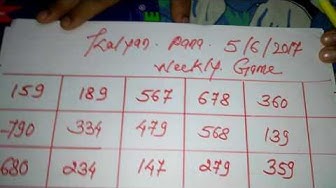 Kalyan. pana. 5/6/2017
weekly. Game
159 189 567 678 360
790 334 479 568 139
680 234 147 279 359